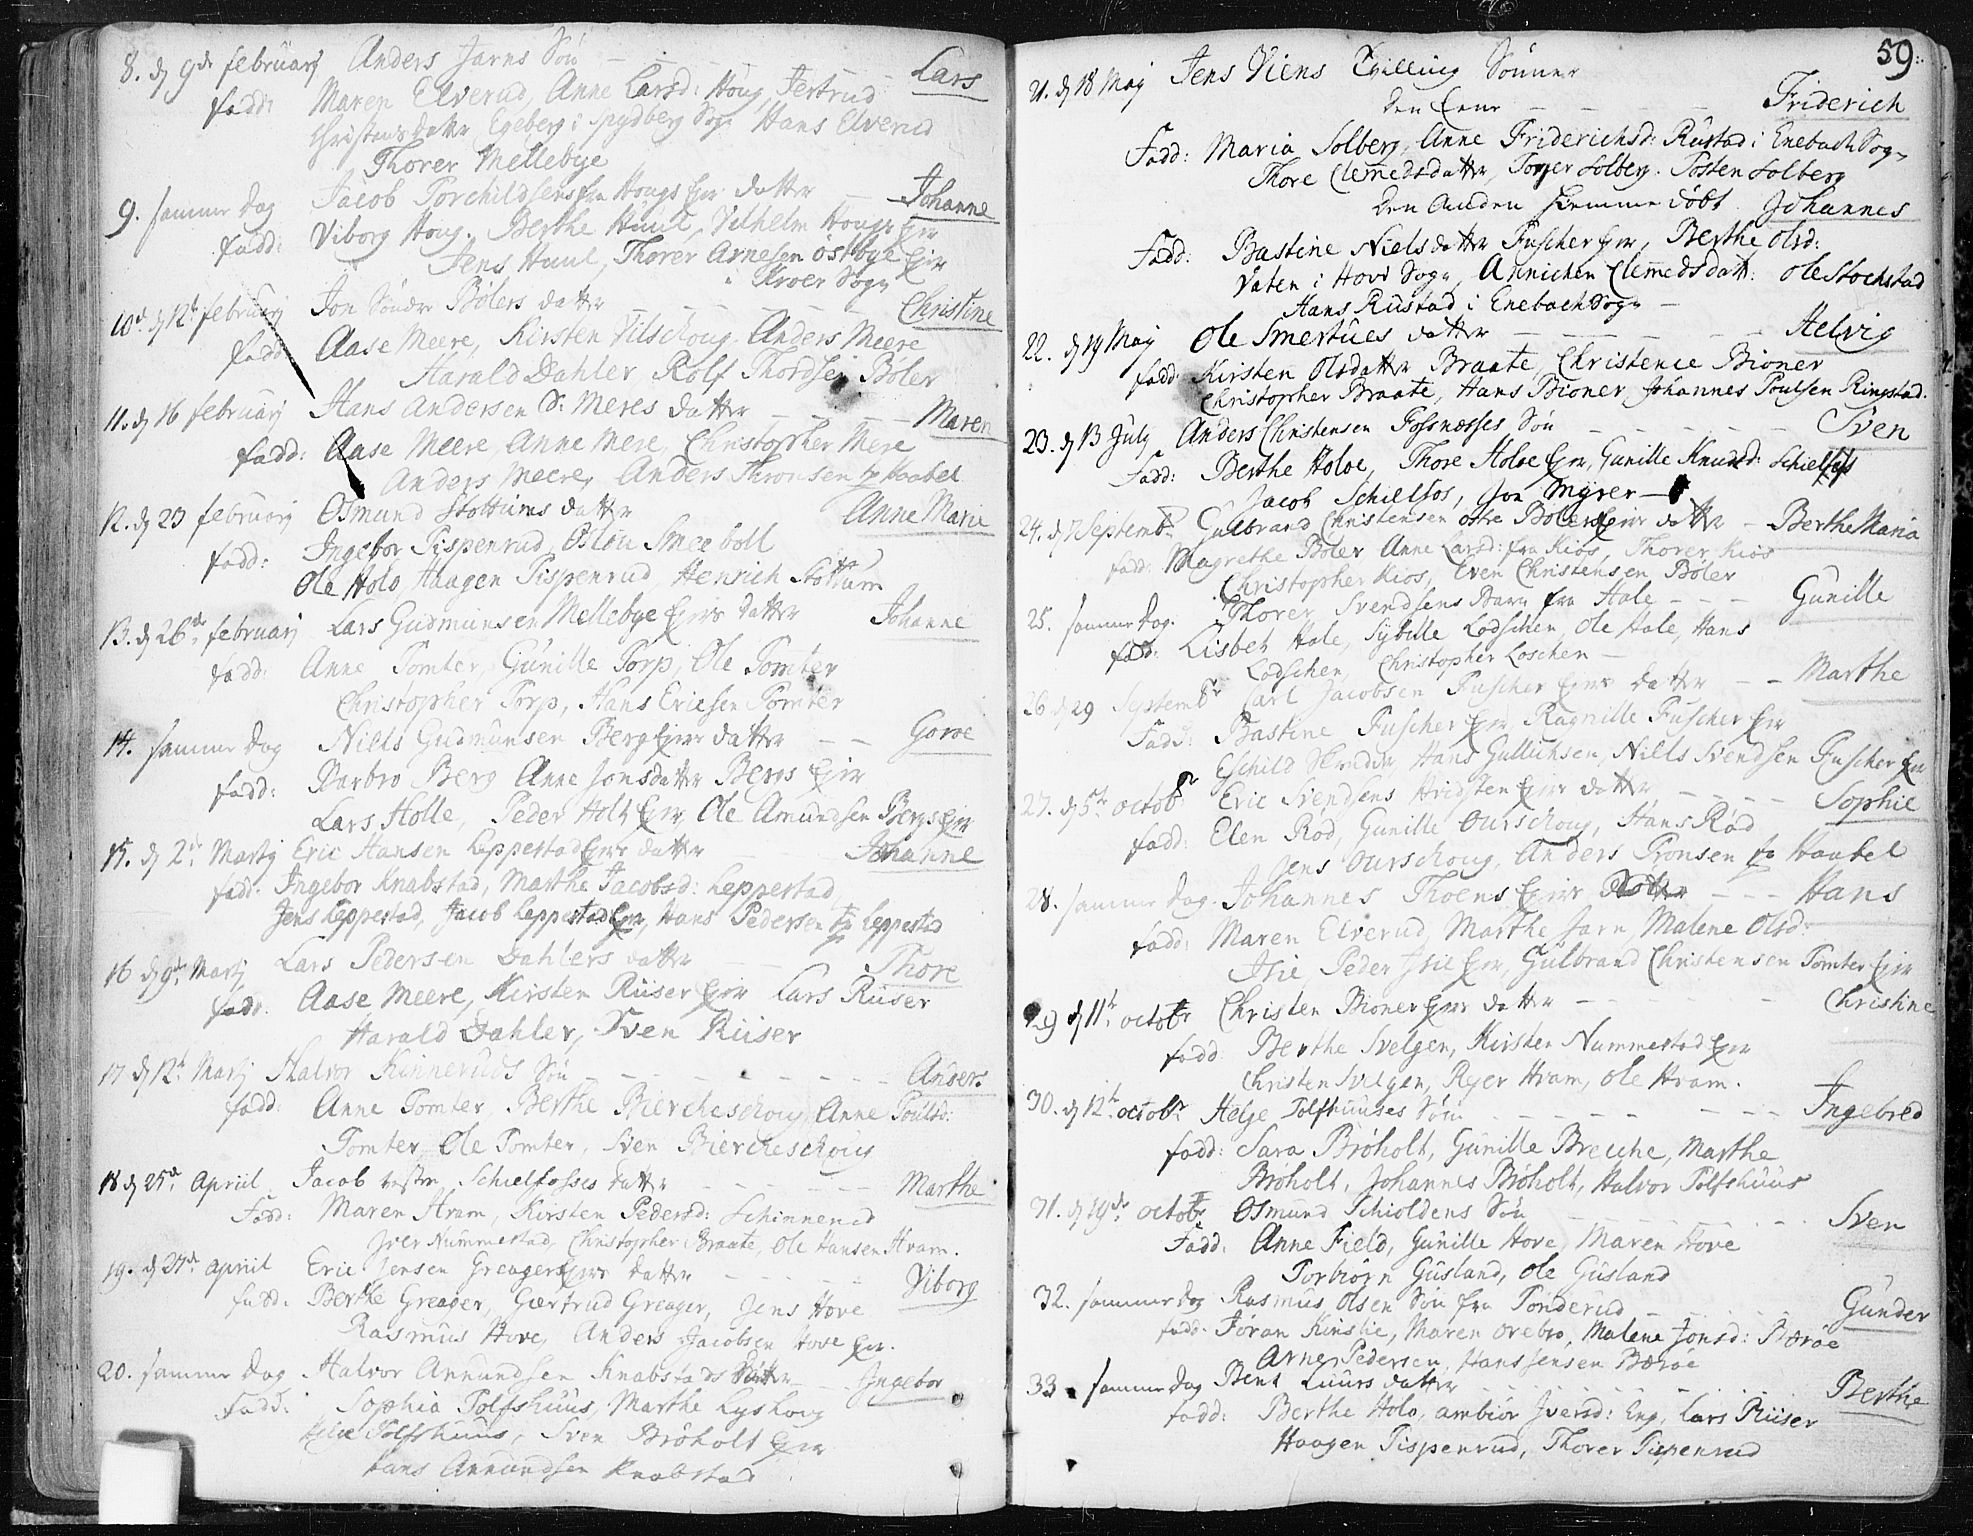 8. d 9de februarj Anders Jarns Søn - - - - - Lars
fadd: Maren Elverud, Anne Larsd: Houg, Jertrud
Christensdatter Egeberg i Spydberg Sogn Hans Elverud
Thorer Mellebye
9. samme Dag Jacob Torchildsens fra Hougs Eier datter - Johanne
fadd: Viborg Houg, Berthe Huul, Vilhelm Hougs Eier
Jens Huul, Thorer Arnesen Østbye Eier
i Kroer Sogn
10de d 12te februarj Jon Søndre Bølers datter - - - - Christine
fadd: Aase Meere, Kirsten Vilschoug Anders Meere
Harald Dahler Rolf Thordsen Bøler
11. d 16 februarj Hans Andersen S. Meres datter - - - Maren
fadd: Aase Meere, Anne Mere, Christopher Mere
Anders Meere, Anders Thronsen fra Haabel
12. d 23 februarj Osmund Stottums datter Anne Marie
fadd: Ingebor Tispenrud, Oslou Smeeboll
Ole Holo, Haagen Tispenrud, Henrich Stottum
13. d 26de februarj Lars Gudmunsen Mellebye Eiers datter Johanne
fadd: Anne Tomter, Gunille Torp, Ole Tomter
Christopher Torp, Hans Ericsen Tomter
14. samme Dag Niels Gudmunsen Berg Eiers datter - Gorve
fadd: Barbro Berg Anne Jonsdatter Bergs Eier
Lars Holle, Peder Holt Eier, Ole Amundsen Bergs Eier
15. d 2de Martj Eric Hansen Leppestad Eiers datter Johanne
fadd: Ingebor Knabstad, Marthe Jacobsd: Leppestad
Jens Leppestad, Jacob Leppestad Eier, Hans Pedersen fra Leppestad
16 d 9de Martj Lars Pedersen Dahlers datter - - Thore
fadd: Aase Meere, Kirsten Riiser Eier Lars Riiser
Harald Dahler, Sven Riiser
17 d 12te Martj Halvor Kinneruds Søn - - - - - - - Anders
fadd: Anne Tomter, Berthe Biercheschoug, Anne Poulsd:
Tomter, Ole Tomter, Sven Biercheschoug
18 d 25de April Jacob vestre Schielfosses datter - - - - - Marthe
Fadd: Maren Hram, Kirsten Pedersd: Schinnerud
Iver Nummestad, Christopher Braate, Ole Hansen Hram.
19. d 27de april Eric Jensen Greagers Eiers datter - - - - Viborg
fadd. Berthe Greager, Giertrud Greager, Jens Hove
Rasmus Hove, Anders Jacobsen Hove Eier.
20. samme Dag Halvor Annundsen Knabstads datter - Ingebor
Fadd: Sophia Tolfshuus, Marthe Lyshoug
Helie Tolfshuus, Sven Brøholt Eier
Hans Annundsen Knabstad
59.
21. d 18 Maj Jens Viens Tvilling Sønner
den Eene - - - - - Friderich
Fadd: Maria Solberg, Anne Friderichsd: Rustad i Enebach Sogn
Thore Clemedsdatter, Torger Solberg. Tosten Solberg
den Anden hiemme døbt Johannes
Fadd: Bastine Nielsdatter Fuscher Eier, Berthe Olsd:
Vaten i Hovi Sogn, Annichen Clemedsdatt: Ole Stochstad
Hans Rustad i Enebach Sogn -
22. d 19 Maj Ole Smertues datter - - - - - - - - Helvig
fadd: Kirsten Olsdatter Braate, Christence Bioner
Christopher Braate, Hans Bioner, Johannes Poulsen Ringstad.
23. d 13 July Anders Christensen Fossnæsses Søn - - - - - - Sven
Fadd: Berthe Holoe, Thore Holoe Eier, Gunille Knudsd: Schielfos
Jacob Schielfos, Jon Myrer -
24. d 7 Septembr Gulbrand Christensen østre Bølers Eiers datter - Berthe Maria
fadd: Magrethe Bøler Anne Larsd: fra Kios, Thorer Kios
Christopher Kios, Even Christensen Bøler
25. samme Dag. Thorer Svendsens Barn fra Hale - - - Gunille
fadd: Lisbet Hale, Sybille Lodschen, Ole Hale, Hans
Lodschen, Christopher Loschen -
26 d 29 Septembr Carl Jacobsen Fuscher Eiers datter - - Marthe
Fadd: Bastine Fuscher Eier, Ragnille Fuscher Eier
Eschild Skreder, Hans Gullichsen, Niels Svendsen Fuscher Eier
27. d 5te octobr Eric Svendsens Hvidsten Eiers datter - - - - Sophie
fadd: Elen Rød, Gunille Ourschoug, Hans Rød
Jens Ourschoug, Anders Tronsen fra Haabel
28. samme Dag. Johannes Thoens Eiers - - - Hans
fadd: Maren Elverud, Marthe Jarn, Malene Olsd:
Irie Peder Irie Eier, Gulbrand Christensen Tomter Eier
29 d 11te octobr Christen Bioner Eiers datter - - - - - Christine
fadd: Berthe Svelgen, Kirsten Nummestad Eier
Christen Svelgen, Ager Hram, Ole Hram.
30. d 12te octobr Helge Tolfhuuses Søn - - - - - - - - Ingebred
fadd: Sara Brøholt, Gunille Breche, Marthe
Brøholt, Johannes Brøholt, Halvor Tolfshuus
31. d 19de octobr Osmund Schioldens Søn - - - - - - Sven
Fadd: Anne Field, Gunille Hove Maren Hove
Torbiørn Gusland, Ole Gusland
32. samme Dag Rasmus Olsen Søn fra Tonderud - - - - Gunder
fadd. Jøran Kinslie, Maren Ørebro, Malene Jonsd: Bærøe
Arne Pedersen, Hans Jensen Bærøe
33. samme Dag Bent Luurs datter - - - - - - - Berthe
fadd: Berthe Holo, Ambiør Iversd: Eng, Lars Riiser
Haagen Tispenrud, Thorer Tispenrud